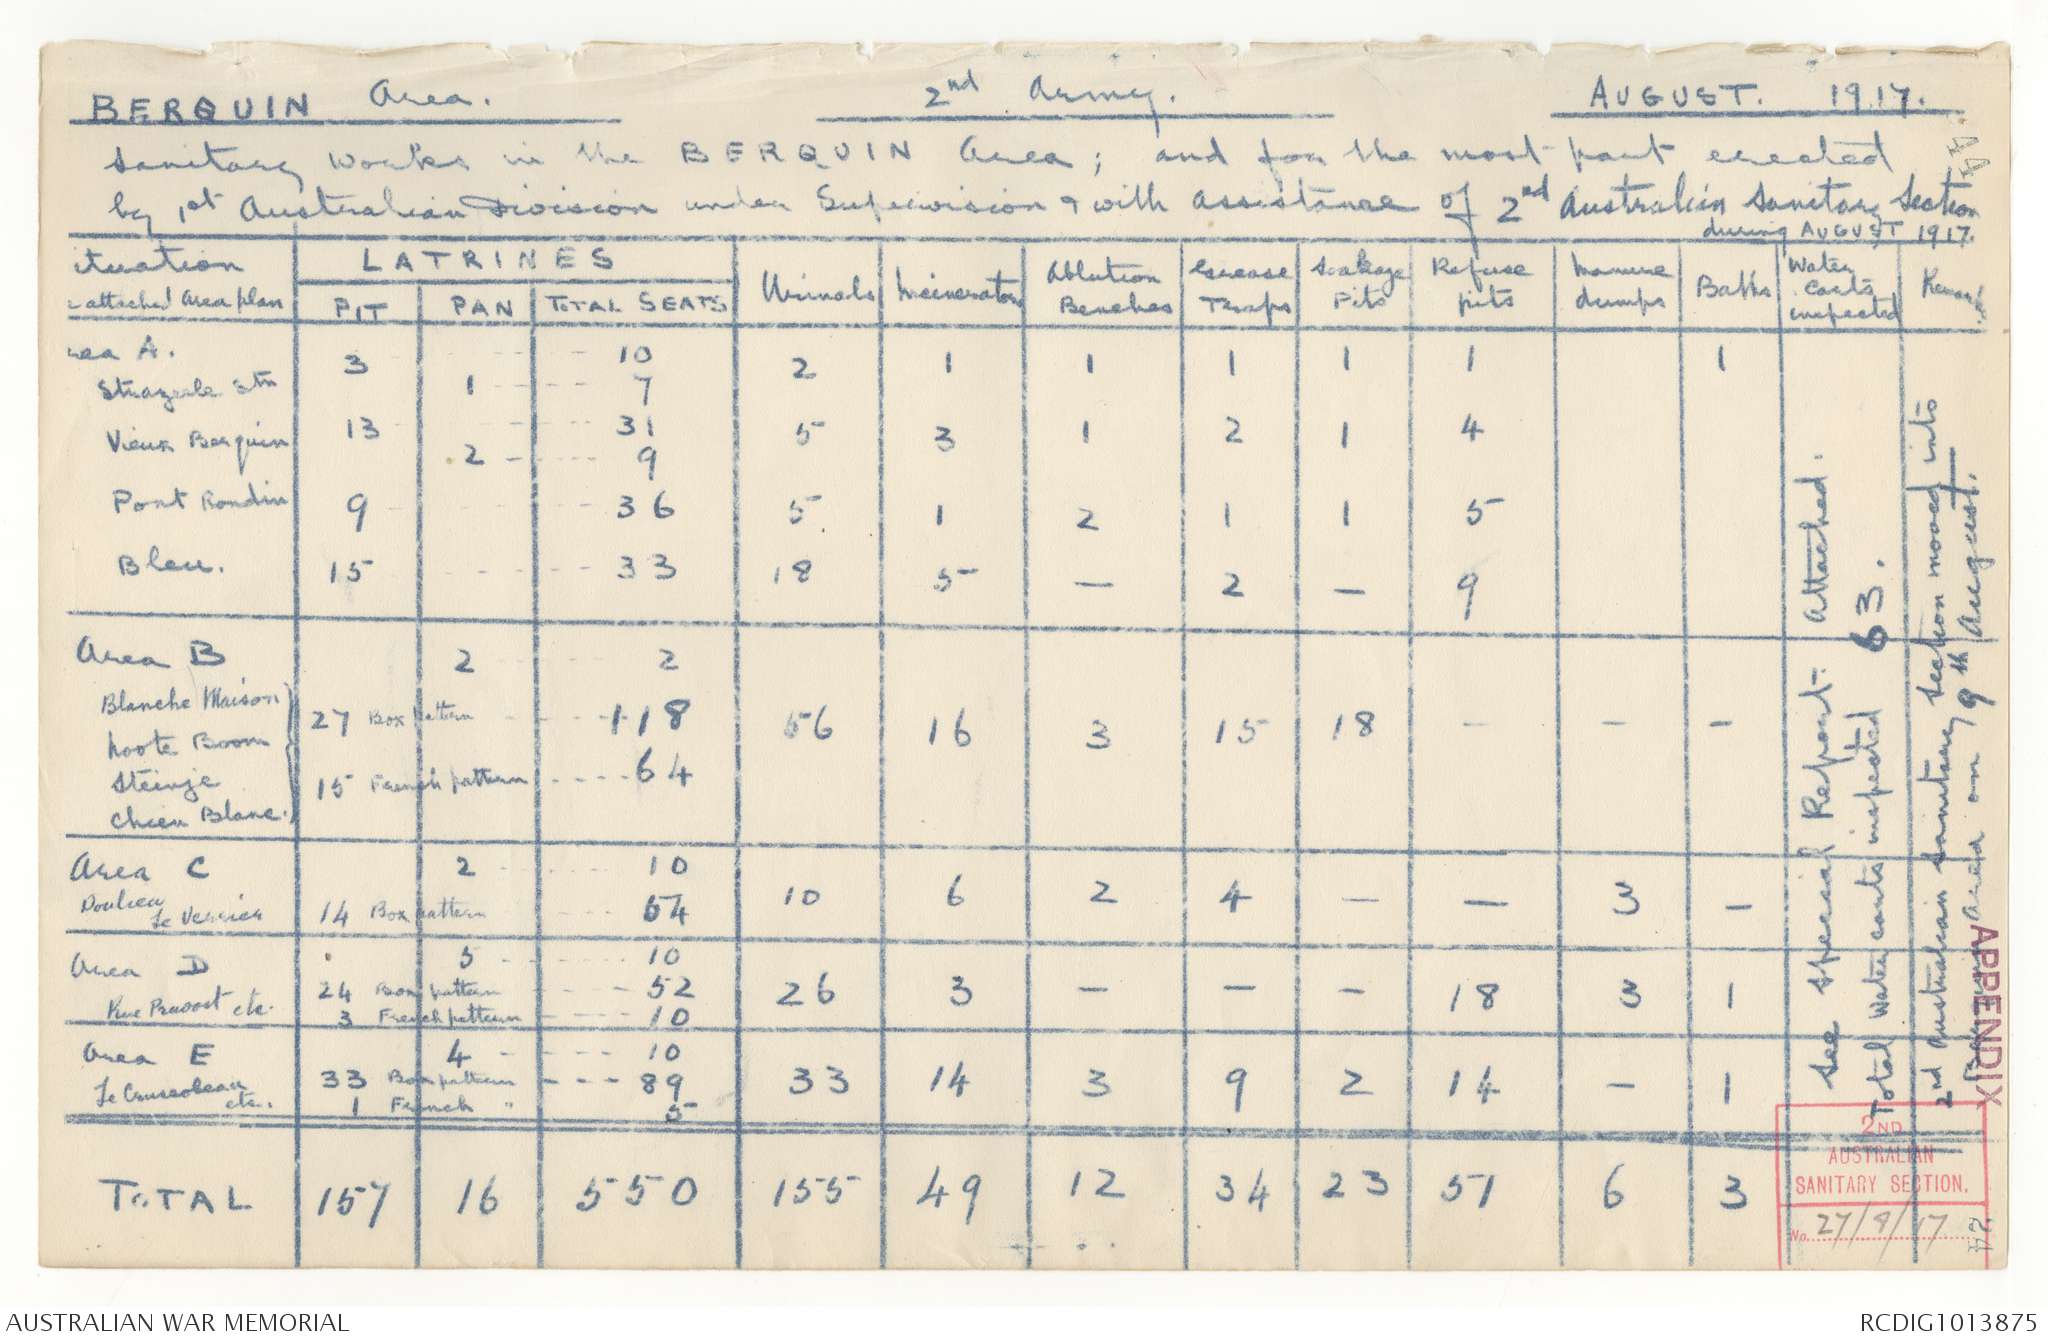 BERQUIN Area. 2nd Army. AUGUST. 1917.
Sanitary Works in the BERQUIN Area; and for the most part erected
by 1st Australian Division under Supervision & with assistance of 2nd Australian Sanitary Section
during AUGUST 1917.
ituation LATRINES Urinals Incinerators Ablution Benches Grease Traps Soakage Pits Refuse pits Manure dumps Baths Water Carts inspected Remarks
attached Area plan PIT PAN TOTAL SEATS
rea A. 3 10 2 1 1 1 1 1 1
Strazeele Stn 1 7
Vieux Berquin 13 31 5 3 1 2 1 4
2 9
Pont Rondin 9 36 5 1 2 1 1 5
Bleu. 15 33 18 5 — 2 — 9
Area B 2 2
Blanche Maison 27 Box pattern 118 56 16 3 15 18 — — —
Noote Boom
Steinje 15 French pattern 64
Chien Blanc.
Area C 2 10 10 6 2 4 — — 3 —
Doulieu
Le Verrier 14 Box pattern 54
Area D 5 10
Rue Provost etc. 24 Box pattern 52 26 3 — — — 18 3 1
3 French pattern 10
Area E 4 10
33 Box pattern 89 33 14 3 9 2 14 — 1
etc. 1 French " 5
TOTAL 157 16 550 155 49 12 34 23 51 6 3
See special Report. attached.
Total Water carts inspected 63.
2nd Australian Sanitary Section moved into
Area on 9th August.
APPENDIX
2ND
AUSTRALIAN
SANITARY SECTION.
No. 27/8/17
AUSTRALIAN WAR MEMORIAL RCDIG1013875